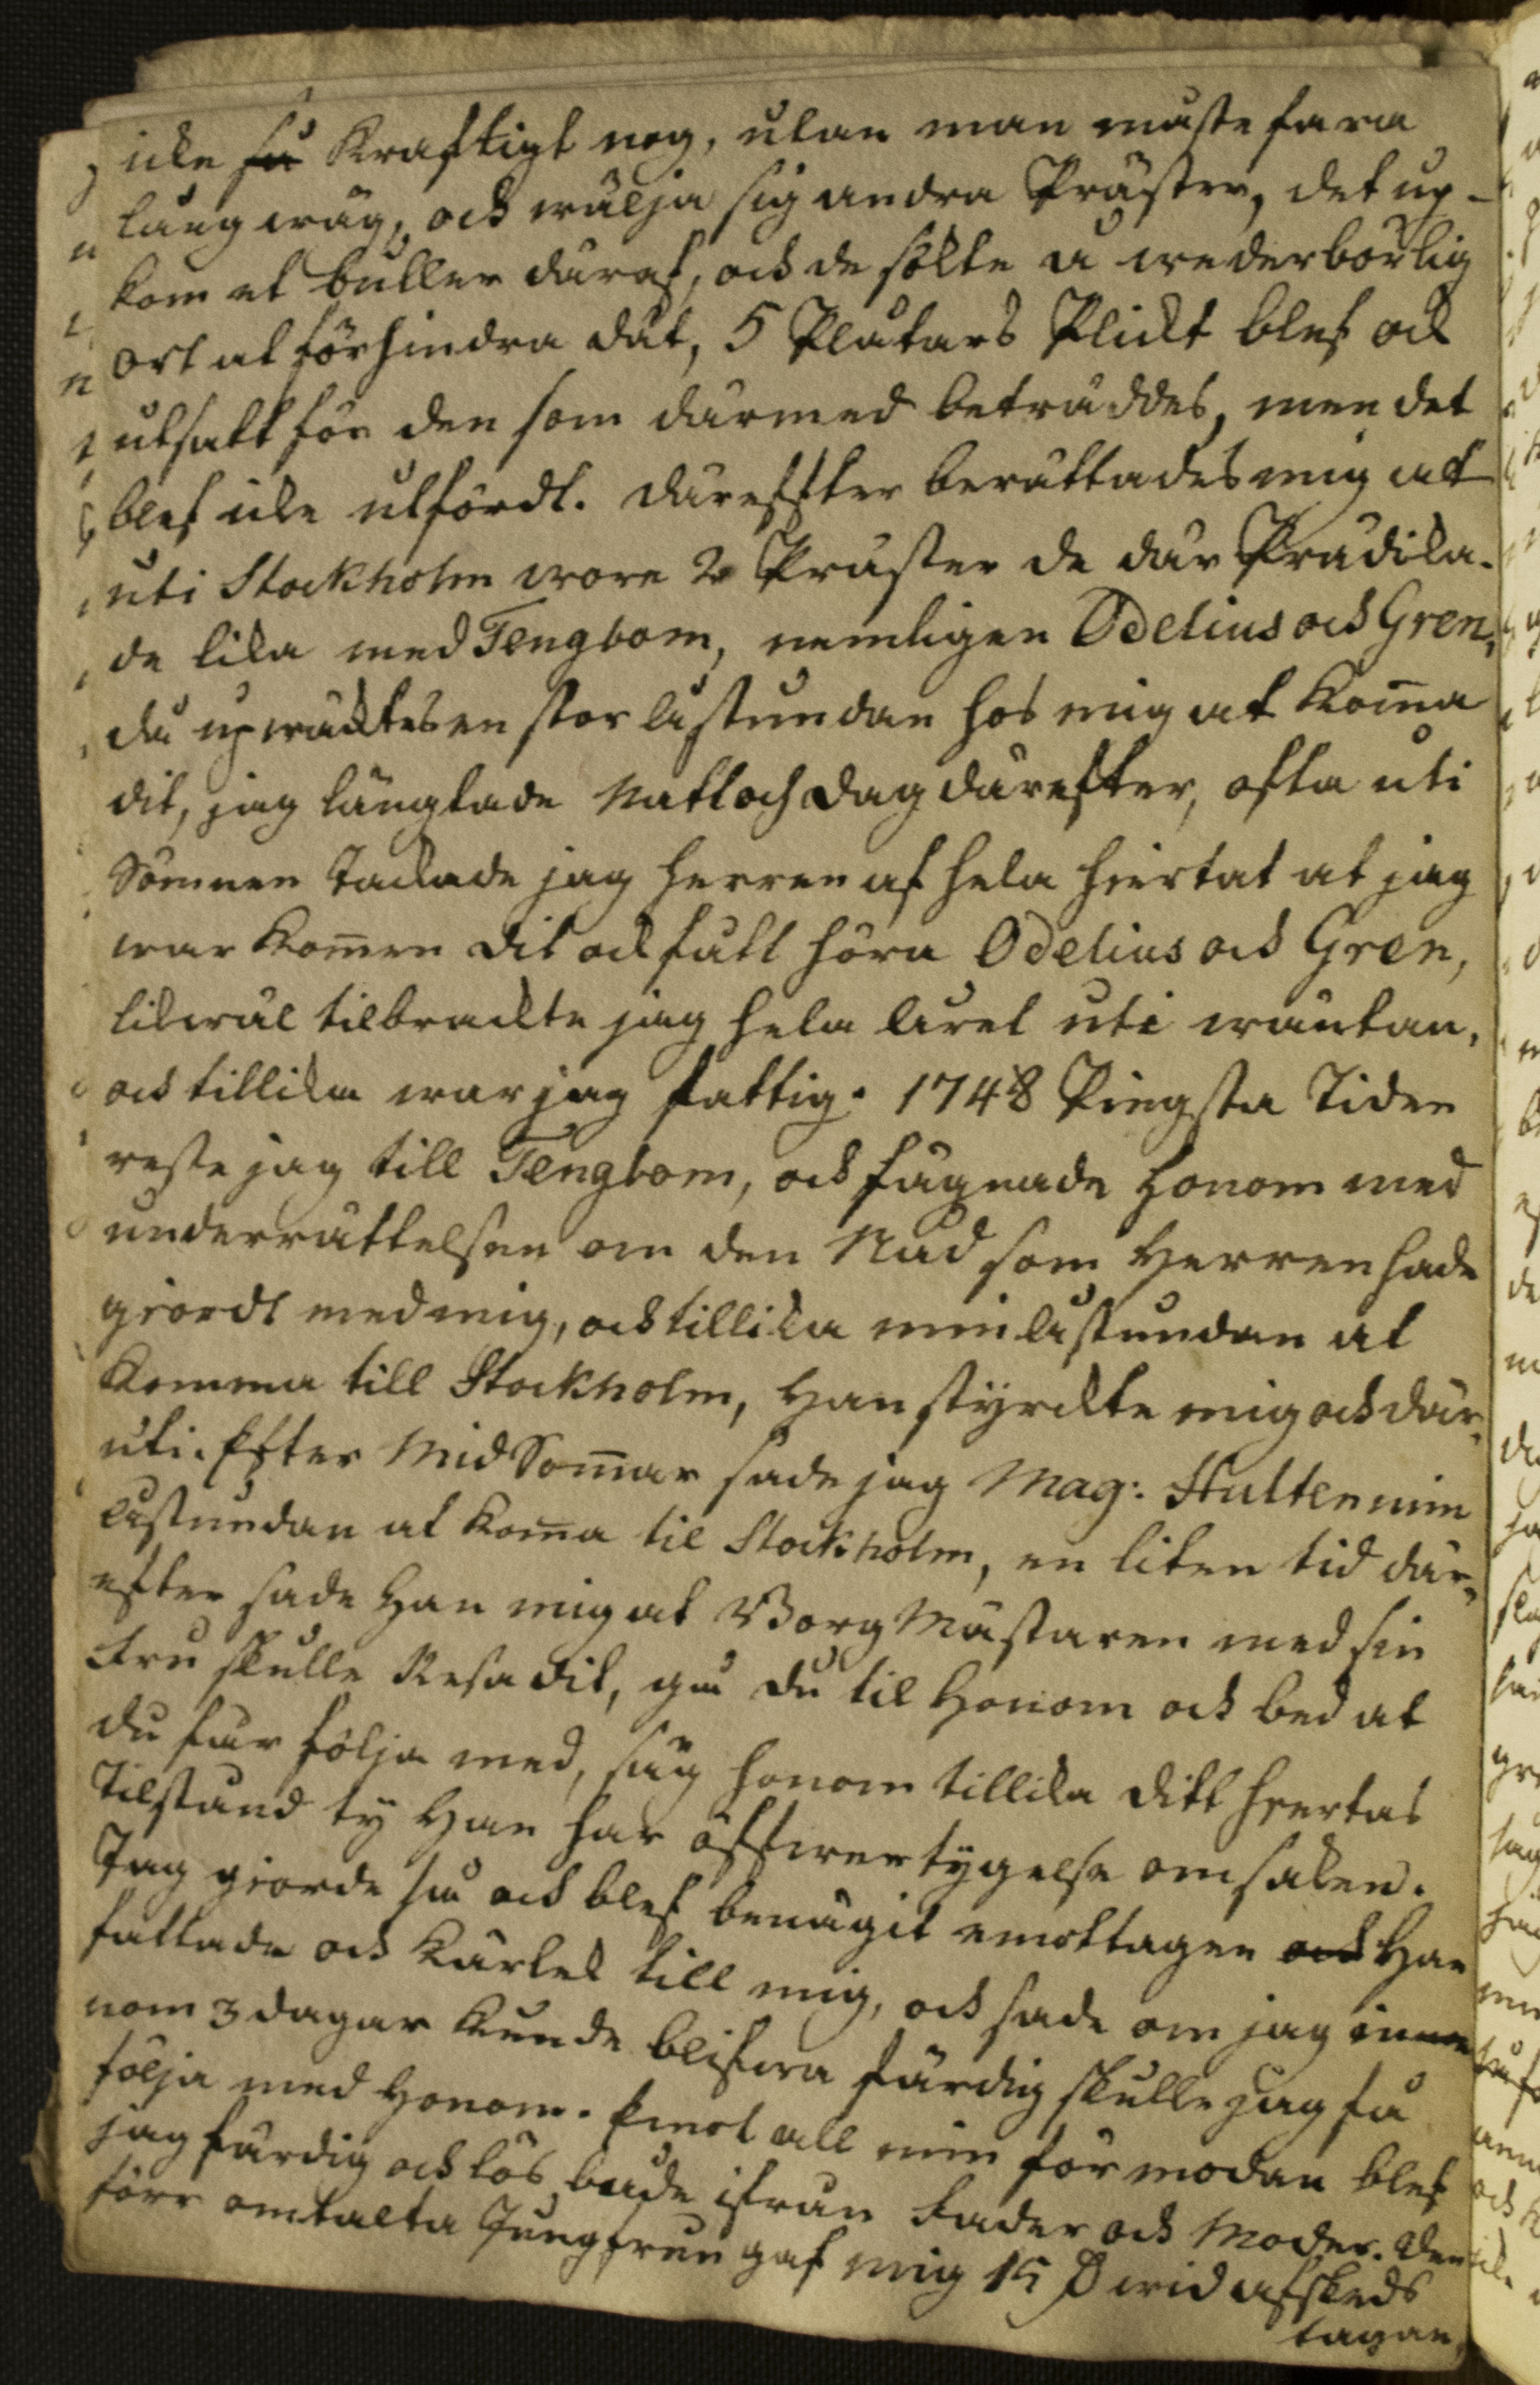 icke så Kraftigt nog, utan man måste fara
lång wäg, ock wälja sig andra Präster, det up-
kom et buller däraf, ock de sökte å wederbörlig
ort at förhindra dåt, 5 Plåtars Plickt blef ock
utsatt för den som därmed beträddes, men det
blef icke utfördt. därefter berättades mig at
uti Stockholm wore 2 Präster de där Prädicka-
de lika med Tengbom, nemligen Odelius ock Gren,
då upwäcktes en stor åstundan hos mig at Komma
dit, jag längtade Natt och dag därefter, ofta uti
Sömnen tackade jag Herren af hela hiertat at jag
war Kommen dit ock fått höra Odelius ock Gren,
likwäl tilbrackte jag hela året uti wäntan,
ock tillika war jag fattig. 1748 Pingsta Tiden
reste jag till Tengbom, ock fägnade honom med
underrättelsen om den Nåd som Herren hade
giordt med mig, ock tillika min åstundan at
Komma till Stockholm, Han styrckte mig ock där-
uti. Efter MidSommar sade jag Mag: Hulten min
åstundan at Komma til Stockholm, en liten tid där-
efter sade Han mig at BorgMästaren med sin
Fru skulle Resa dit, gå du til Honom ock bed at
du får följa med, säg honom tillika ditt hiertas
Tilstånd ty Han har öfwertygelse om saken.
Jag giorde så ock blef benägit emottagen ock Han
fattade ock Kärlek till mig, ock sade om jag innom
nom 3 dagar Kunde blifwa färdig skulle jag få
följa med Honom. Emot all min förmodan blef
jag färdig ock lös både ifrån Fader ock Moder. Den
förr omtalta Jungfrun gaf mig 15 D wid afskeds
tagan